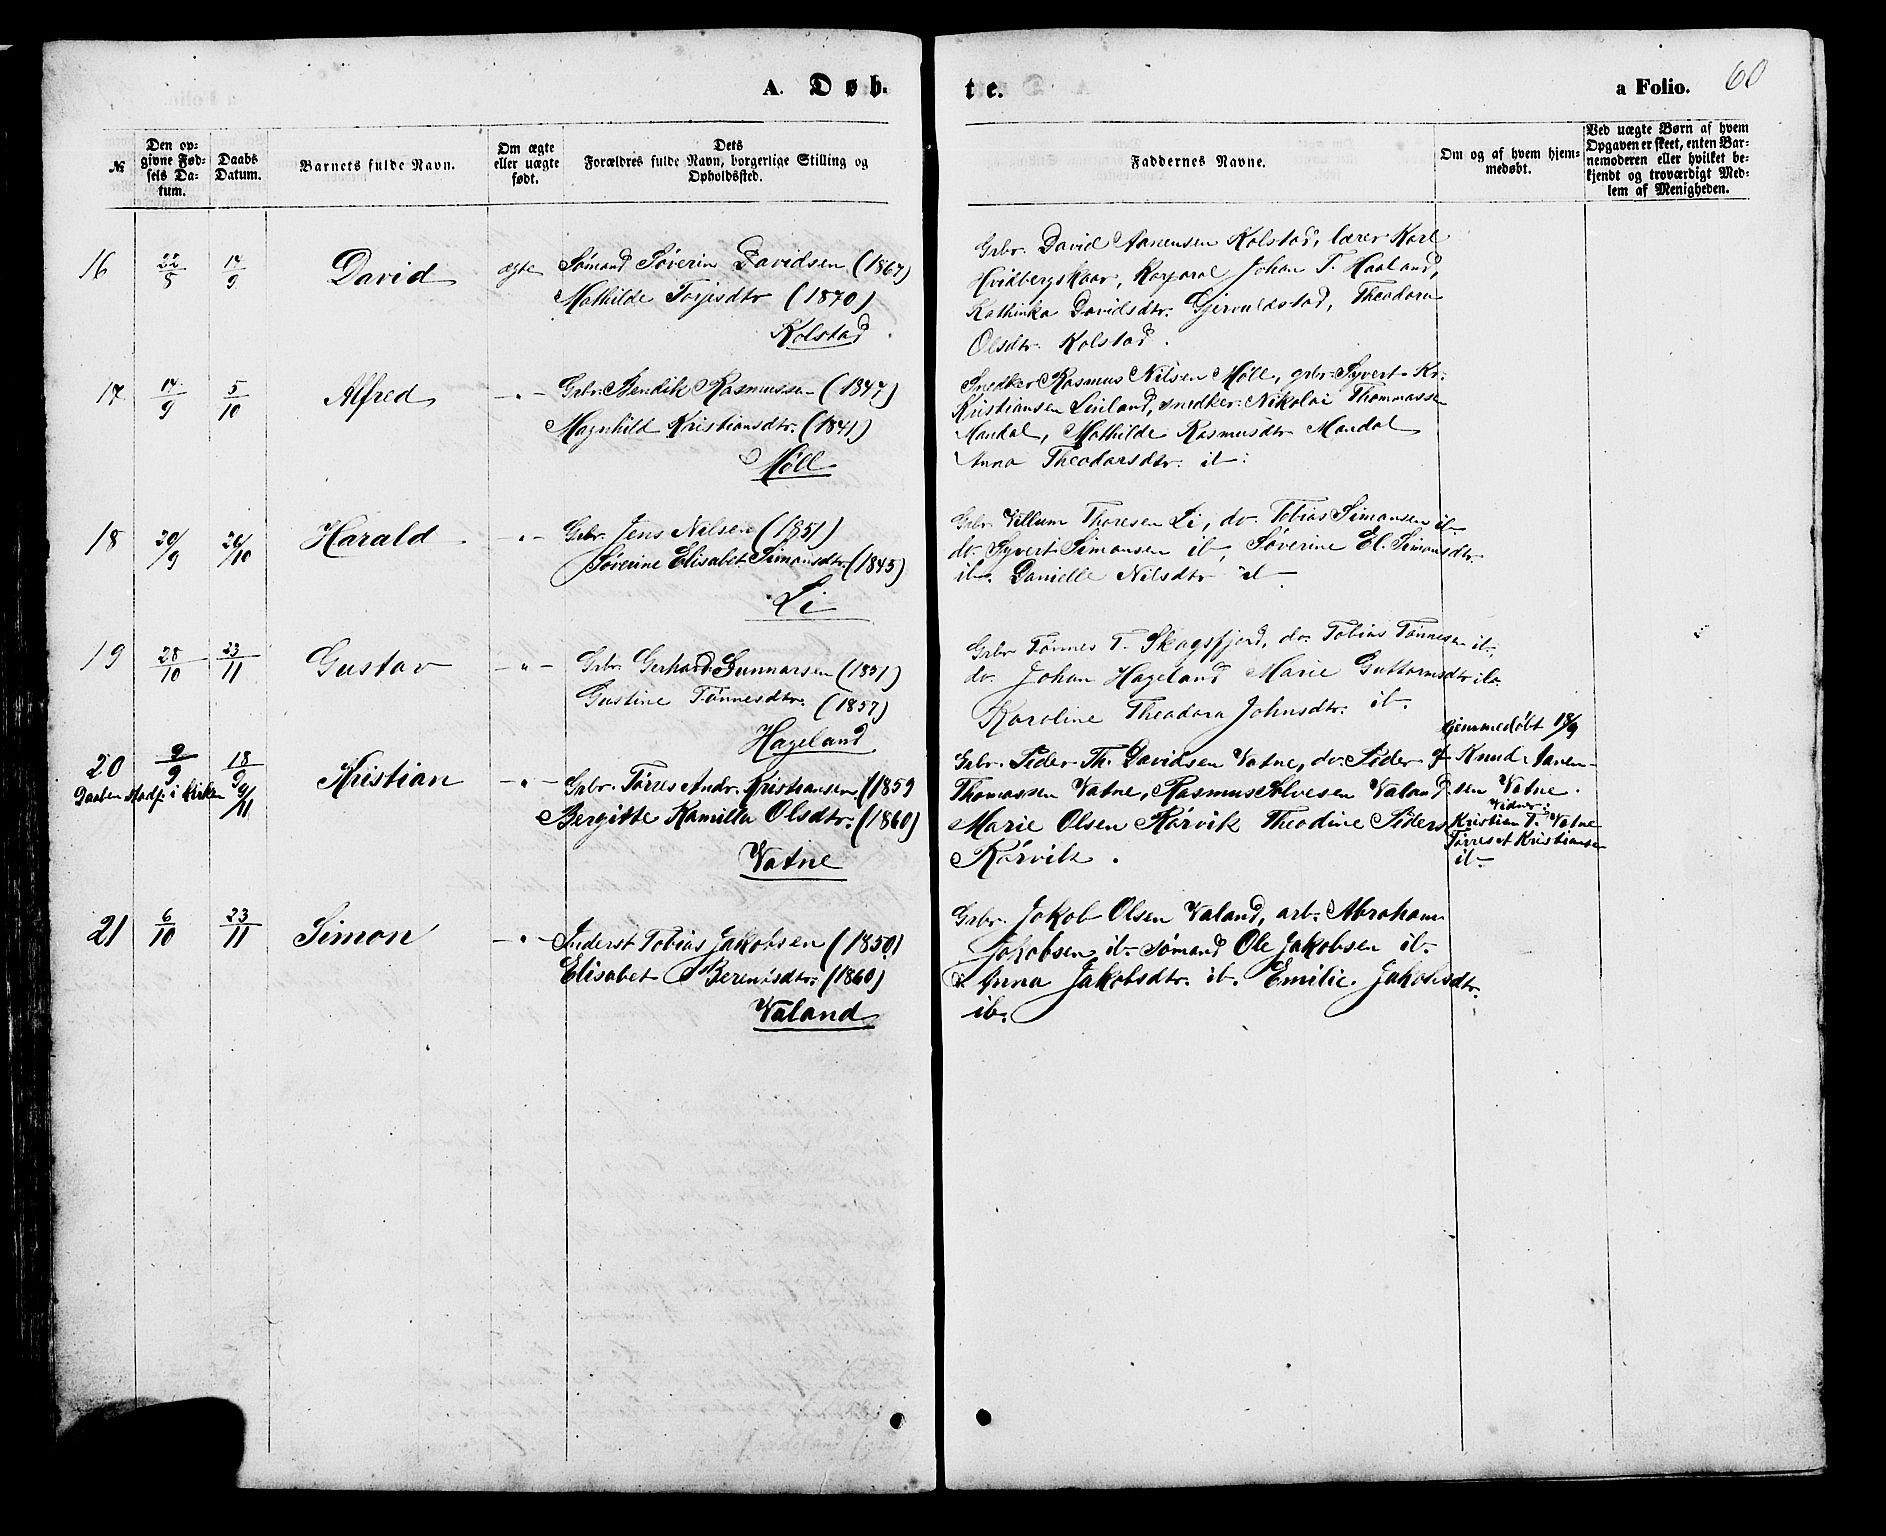 A. Døb-
te.
a Folio. 60
№
Den op-
givne Fød-
sels Da-
tum.
Daabs
Datum.
Barnets fulde Navn.
Om ægte
eller uægte
født.
Dets
Forældres fulde Navn, borgerlige Stilling og
Opholdssted.
Faddernes Navne.
Om og af hvem hjem-
medøbt.
Ved uægte Børn af hvem
Opgaven er skeet, enten Bar-
nemoderen eller hvilket be-
kjendt og troværdigt Med-
lem af Menigheden.
16 22/5 14/9 David ægte Sømand Søverin Davidsen (1867)
Mathilde Torjisdtr (1870)
Kolstad.
Grbr. David Aanensen Kolstad, lærer Karl
Hvidbergskaar, Korporal Johan T. Haaland,
Kathinka Davidsdtr. Gjervoldstad, Theodora
Olsdtr. Kolstad.
17 14/9 5/10 Alfred -"- Grbr. Bendik Rasmussen (1847)
Magnhild Kristiansdtr. (1841)
Møll
Snedker Rasmus Nilsen Møll, grbr. Syvert Kr.
Kristiansen Linland, snedker Nikolai Thommassen
Mandal, Mathilde Rasmusdtr Mandal
Anna Theodorsdtr. ib.
18 20/9 26/10 Harald -"- Grbr. Jens Nilsen (1851)
Søverine Elisabet Simonsdtr. (1845)
Li
Grbr. Villum Thoresen Li, do. Tobias Simonsen ib.
do. Syvert Simonsen ib, Søverine El. Simonsdtr.
ib. Danielle Nilsdtr ib.
19 28/10 23/11 Gustav -"- Grbr. Gerhard Gunnarsen (1851)
Gustine Tønnesdtr. (1857)
Hageland
Grbr Tønnes T. Skogsfjord, do. Tobias Tønnesen ib.
do. Johan Hageland Marie Guttormsdtr ib.
Karoline Theodora Johnsdtr. ib.
20 9/9 18/9 Kristian -"- Grbr. Tørres Andr. Kristiansen (1859
Daaben stadf. i kirken 9/11
Bergitte Kamilla Olsdtr. (1860)
Vatne
Grbr. Peder Th. Davidsen Vatne, do. Peder
Thomassen Vatne, Rasmus Salvesen Valand
Marie Olsen Rørvik Theodine Peders
Rørvik.
Hjemmedøbt 18/9
af Knud Aanen-
sen Vatne.
Vidner:
Kristian T. Vatne
Tørres A Kristiansen
ib.
21 6/10 23/11 Simon -"- Inderst Tobias Jakobsen (1850)
Elisabet Berentsdtr. (1860)
Valand
Grbr. Jakob Olsen Valand, arb. Abraham
Jakobsen ib. sømand Ole Jakobsen ib.
Anna Jakobsdtr. ib. Emilie Jakobsdtr.
ib.